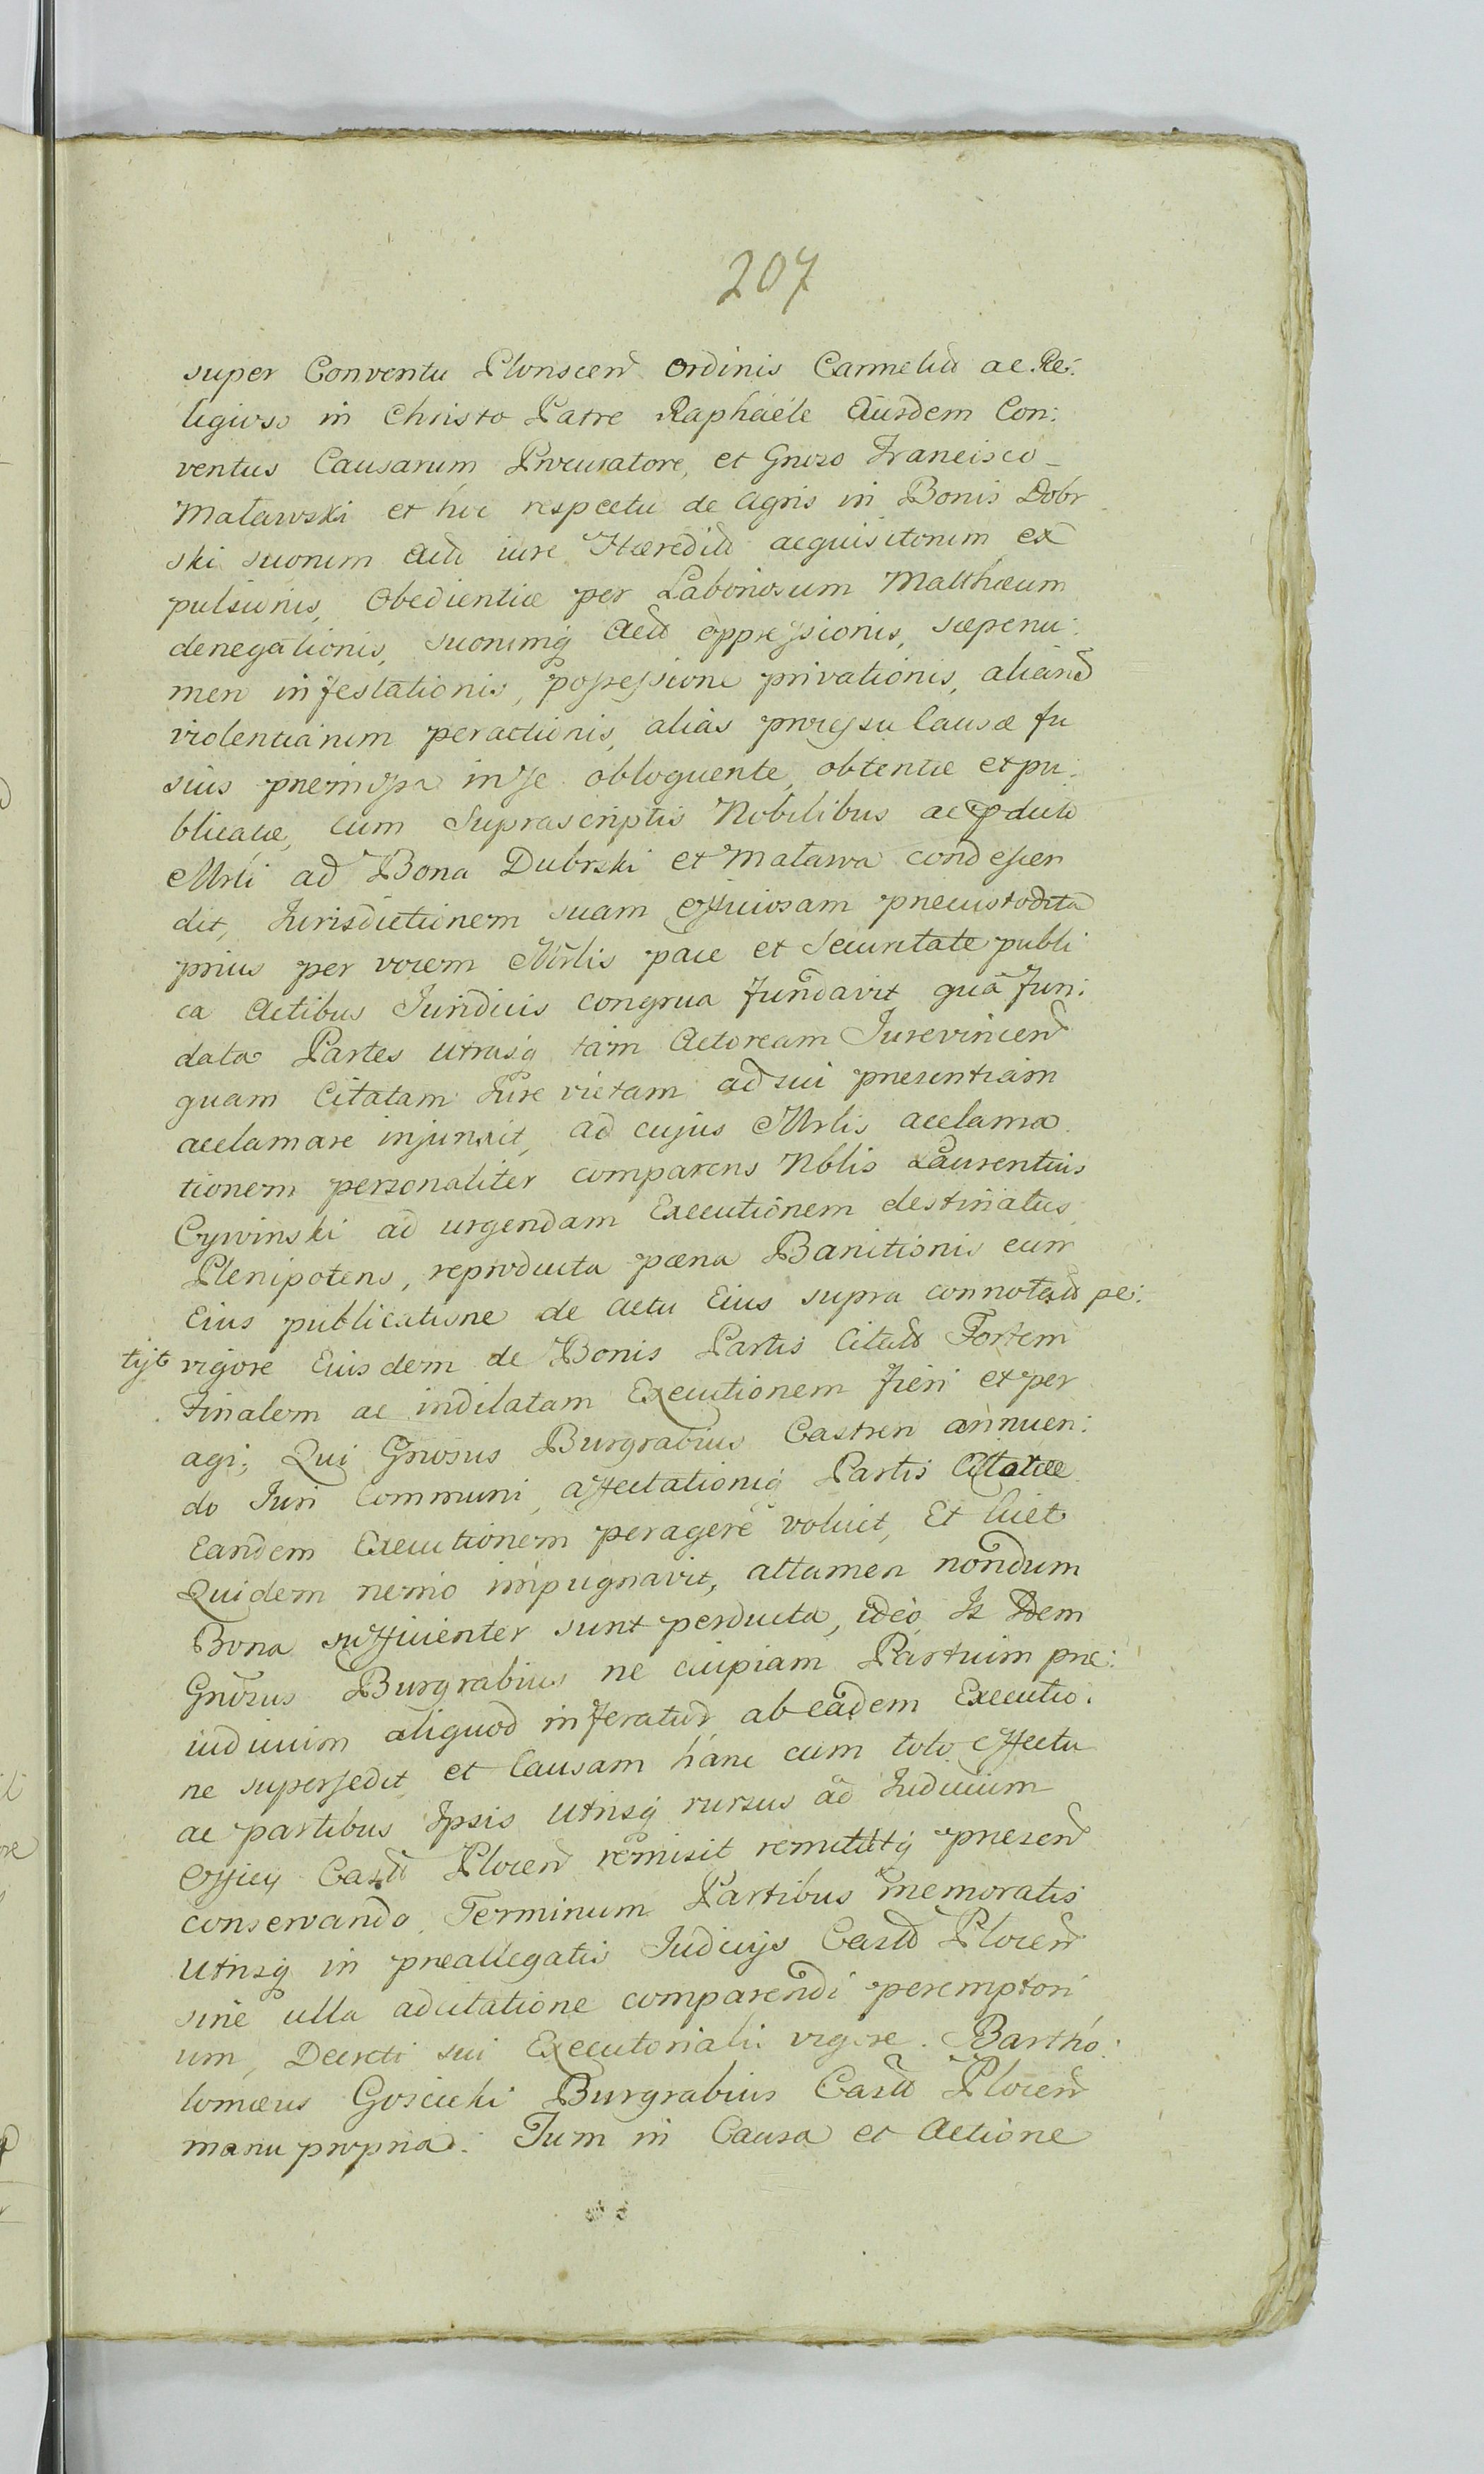 207
super Conventu Plonscen Ordinis Carmelit ac Re:
ligioso in Christo Patre Raphaële Eiusdem Con:
ventus Causarum Procuratore, et Gnoso Francisco
Maławski et hoc respectu de Agris in Bonis Dobr
ski suorum Act iure Hæredit acquisitorum ex
pulsionis, Obedientiæ per Laboriosum Matthæum
denegationis, suorumq Act oppressionis, sæpenu:
men infestationis, possessione privationis, aliand
violentiarum peractionis, alias processu Causæ fu
sius præmissa in se obloquente, obtentæ et pu:
blicatæ, cum Suprascriptis Nobilibus ac
Mrli ad Bona Dubrski et Maława condescen
dit, Jurisdictionem suam Officiosam præcustodita
prius per vocem Mrlis pace et Securitate publi
ca Actibus Juridicis congrua fundavit quâ fun:
data Partes utrasq tam Actoream Jurevincen
quam Citatam Jure victam ad sui præsentiam
acclamare injunxit, ad cujus Mrlis acclama
tionem personaliter comparens Nblis Laurentius
Cywinski ad urgendam Executionem destinatus
Plenipotens, reproducta pœna Banitionis cum
Eius publicatione de actu Eius supra connotato pe:
tijt vigore Eiusdem de Bonis Partis Citat Fortem
Finalem ac indilatam Executionem fieri et per
agi; Qui Gnosus Burgrabius Castren annuen:
do Juri Communi, affectationiq Partis Citatæ
Eandem Executionem peragere voluit, Et licet
Quidem nemo impugnavit, attamen nondum
Bona sufficienter sunt perducta, ideo Is Idem
Gnosus Burgrabius ne cuipiam Partium præ:
iudicium aliquod inferatur ab eadem Executio:
ne supersedit, et Causam hanc cum toto effectu
ac partibus Ipsis utrisq rursus ad Judicium
Officij Cast Plocen remisit remittitq præsen
conservando Terminum Partibus memoratis
utrisq in præallegatis Judicijs Cast Plocen
sine ulla adcitatione comparendi peremptori
um, Decreti sui Executorialis vigore. Bartho:
lomæus Goscicki Burgrabius Cast Plocen
manu propria. Tum in Causa et Actione